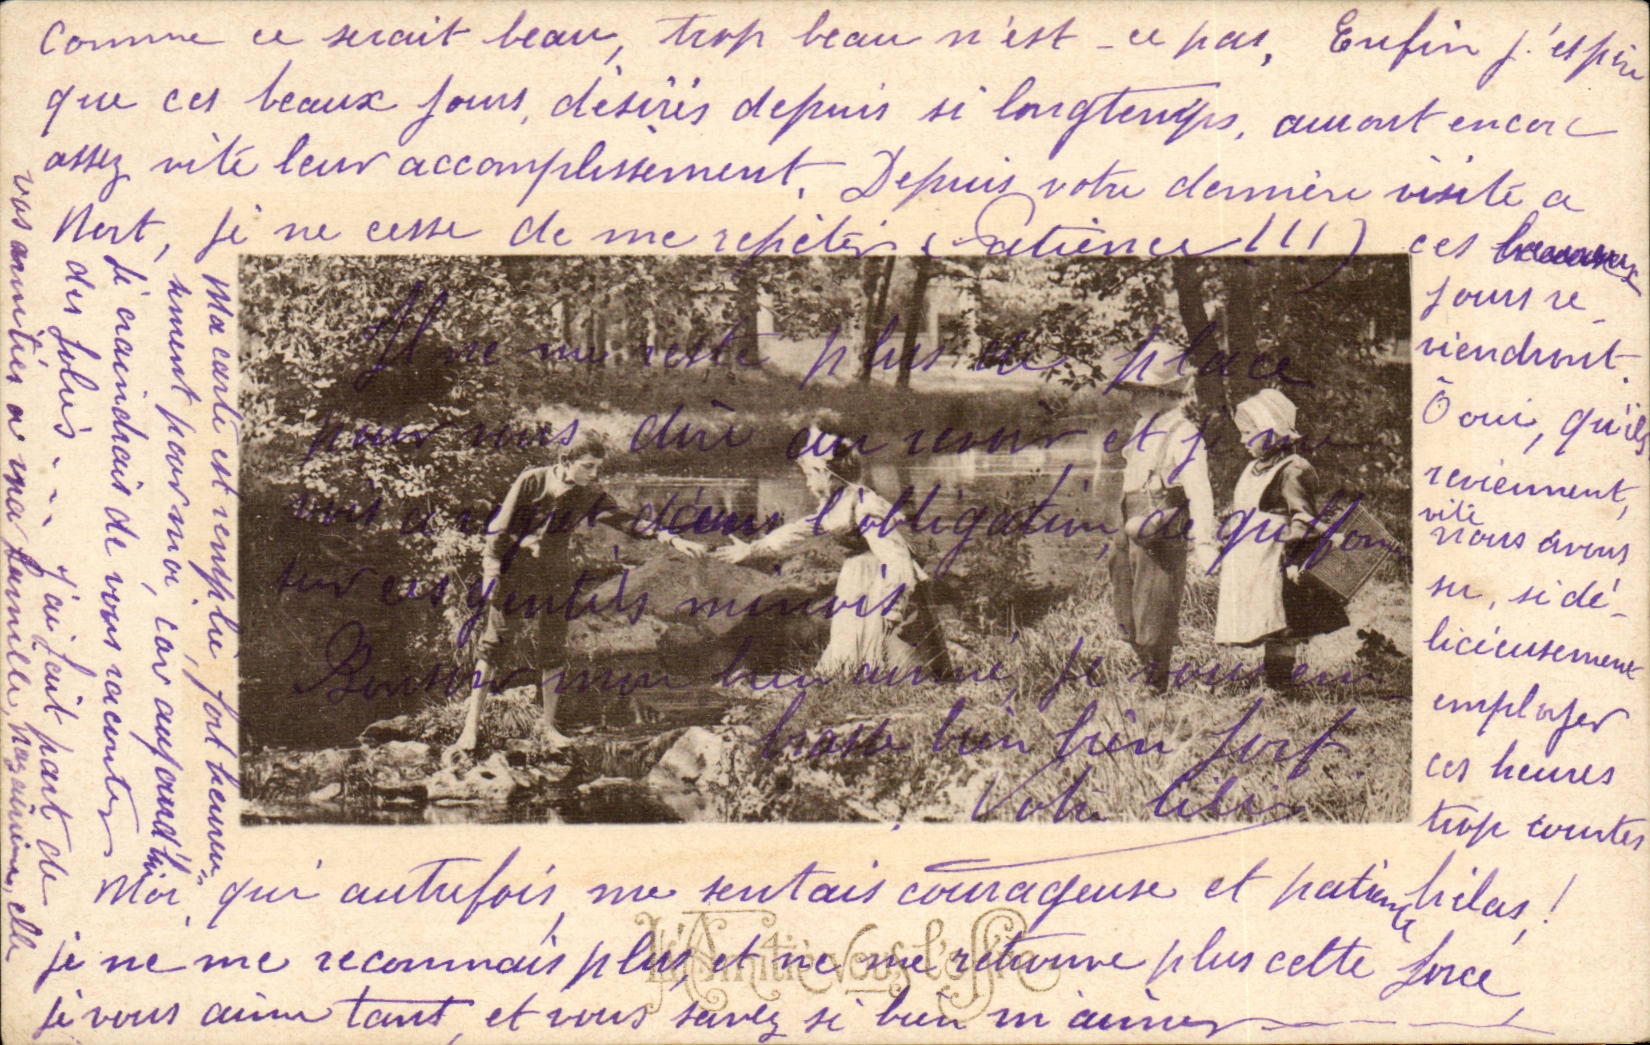 Comme ce serait beau, trop beau n'est-ce pas, Enfin j'espère
que ces beaux jours, désirés depuis si longtemps, auront encore
assez vite leur accomplissement. Depuis votre dernière visite a
Niort, je ne cesse de me répéter (Patience!!!) ces
jours re
viendront.
Ô oui, qu'ils
reviennent,
vite
nous avons
su, si dé-
licieusement
employer
ces heures
trop courtes
Moi, qui autrefois, me sentais courageuse et patiente hélas!
je ne me reconnais plus, et ne me retrouve plus cette force,
je vous aime tant, et vous savez si bien m'aimer
Ma carte est remplie, fort heureu-
sement pour moi, car aujourd'hui
je craindrais de vous raconter
des folies...
j'ai fait part de
vos amitiés a ma famille, elle
Il ne me reste plus de place
pour vous dire au revoir et je me
vois a regret dans l'obligation, de griffonner
sur ces gentils minois
Bonsoir mon bien aimé, je vous em-
brasse bien bien fort.
Votre Lili
L'Amitié vous l'offre